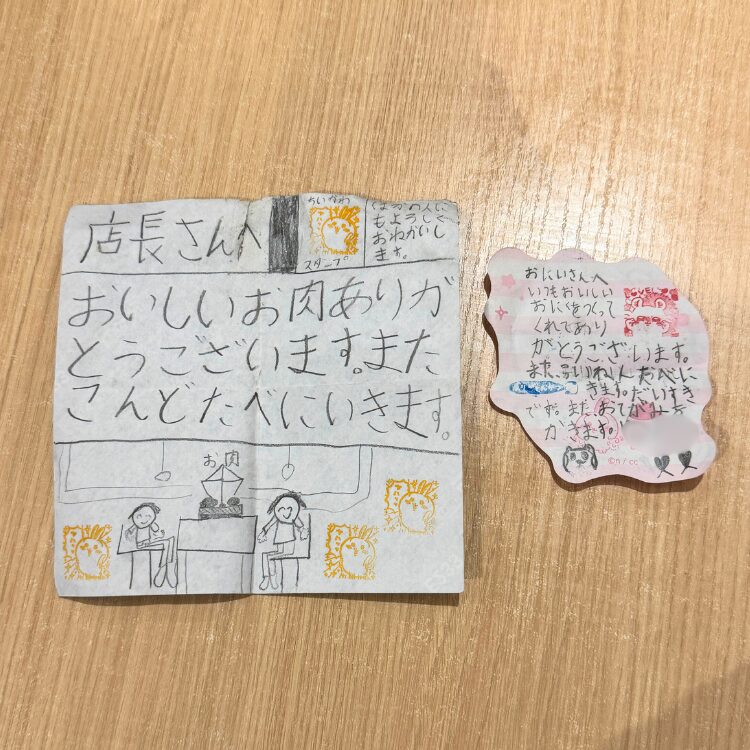 店長さんへ
ちいかわ
スタンプ
ほかの人に
も、ようしく
おねがいし
ます。
おいしいお肉ありが
とうございます。また
こんどたべにいきます。
お肉
おにいさんへ
いつもおいしい
おにくをつくって
くれてあり
がとうございます。
きます。だいすき
です。また おてがみを
がきます。